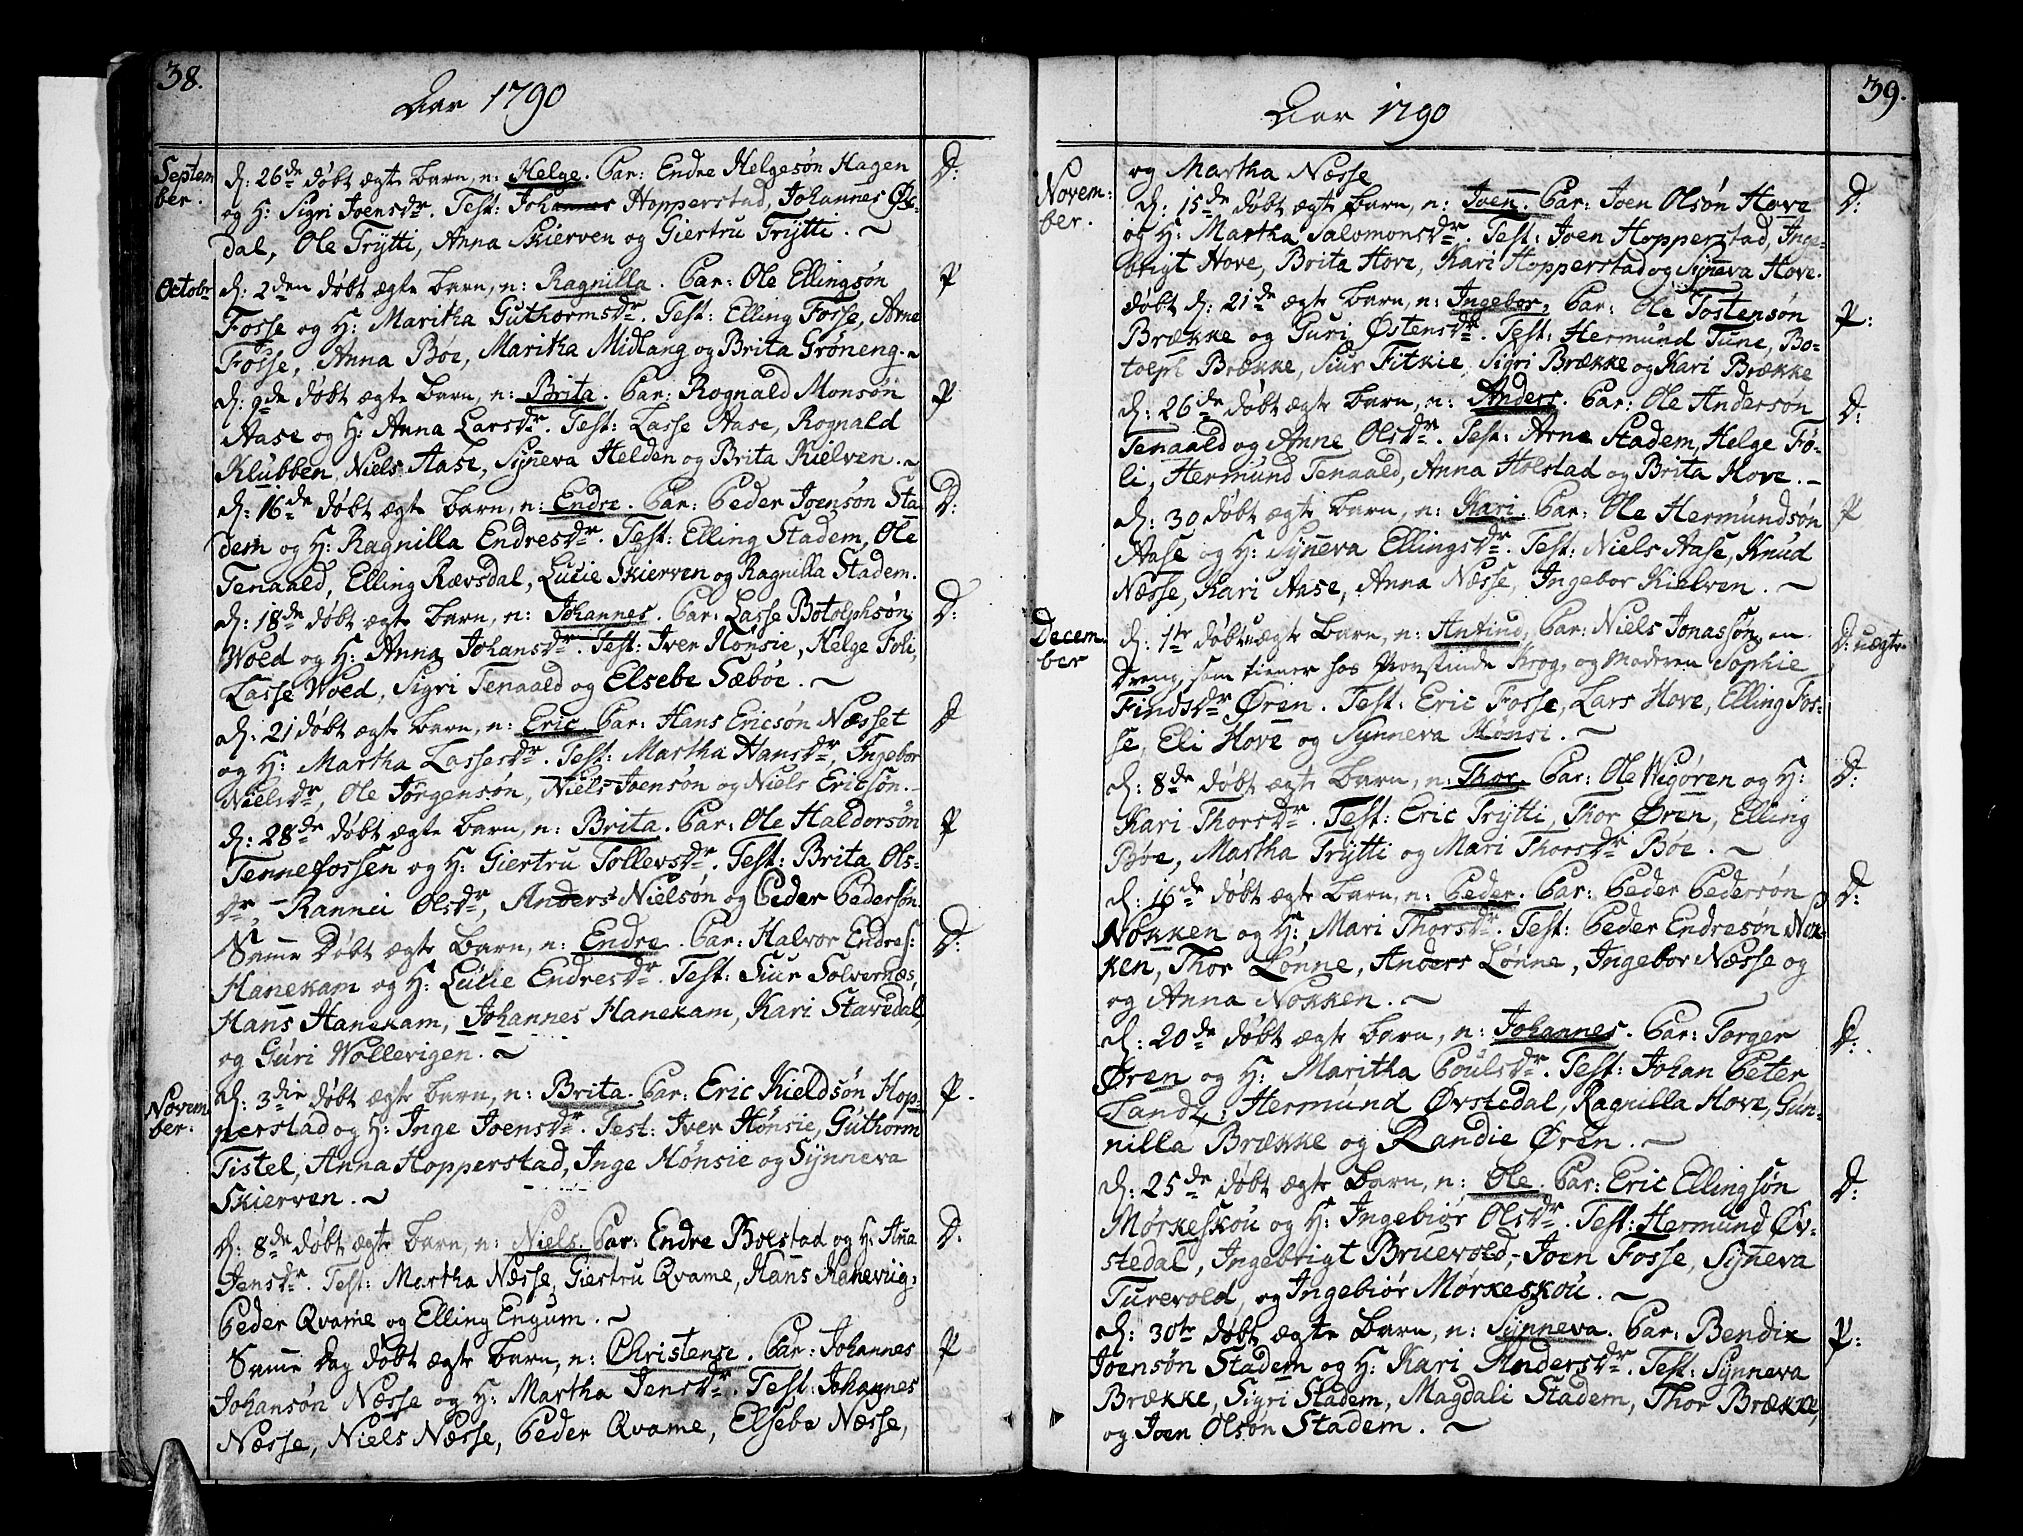 38.
Aar 1790
Septem
ber.
d: 26de døbt ægte Barn, n: Helge. Par: Endre Helgesøn Hagen D:
og H: Sigri Joensdr. Test: Johannes Hopperstad, Johannes
dal, Ole Trÿtti, Anna Skierven og Giertru Trÿtti. ~
Octobr
d: 2den døbt ægte Barn, n: Ragnilla. Par: Ole Ellingsøn P
Fosse og H: Maritha Guthormsdr. Test: Elling Fosse, Arne
Fosse, Anna Bøe, Maritha Midlang og Brita Grøneng. ~
d: 9de døbt ægte Barn, n: Brita. Par: Rognald Monsøn P
Aase og H: Anna Larsdr. Test: Lasse Aase, Rognald
Klubben, Niels Aase, Sÿneva Helden og Brita Kielven. ~
d: 16de døbt ægte Barn, n: Endre. Par: Peder Joensøn Sta- D:
dem og H: Ragnilla Endresdr. Test: Elling Stadem, Ole
Tenaald, Elling Rævsdal, Lucie Skierven og Ragnilla Stadem.
d: 18de døbt ægte Barn, n: Johannes. Par: Lasse Botolphsøn D:
Woed og H: Anna Johansdr. Test: Iver Hønsie, Helge Foli,
Lasse Woed, Sigri Tenaald og Elsebe Sæbøe. ~
d: 21 døbt ægte Barn, n: Eric. Par: Hans Ericsøn Næsset D
og H: Martha Lassesdr. Test: Martha Hansdr, Ingebor
Nielsdr, Ole Jørgensøn, Niels Joensøn og Niels Ericsøn. ~
d: 28de døbt ægte Barn, n: Brita. Par: Ole Haldorsøn P
Tennefossen og H: Giertru Tollevsdr. Test: Brita Ols-
dr, Rannei Olsdr, Anders Nielsøn og Peder Pedersøn.
Samme Døbt ægte Barn, n: Endre. Par: Halvor Endres: D:
Hanekam og H: Lucie Endresdr. Test: Siur Solvernæs,
Hans Hanekam, Johannes Hanekam, Kari Stavedal,
og Guri Wollevigen. ~
Novem
ber.
d: 3die døbt ægte Barn, n: Brita. Par: Eric Kieldsøn Hop- P.
perstad og H: Inge Joensdr. Test: Iver Hønsie, Guthorm
Tistel, Anna Hopperstad, Inge Hønsie og Sÿnneva
Skierven. ~
d: 8de døbt ægte Barn, n: Niels. Par: Endre Bolstad og H: Ana D.
Jensdr. Test: Martha Næsse, Giertru Qvame, Hans Haneviig,
Peder Qvame og Elling Engum. ~
Samme Dag døbt ægte Barn, n: Christense. Par: Johannes P
Johansøn Næsse og H: Martha Jensdr. Test: Johannes
Næsse, Niels Næsse, Peder Qvame, Elsebe Næsse,
39.
Aar 1790
Novem-
ber.
og Martha Næsse
d: 15de døbt ægte Barn, n: Joen. Par: Joen Olsøn Hove D:
og H: Martha Salomonsdr. Test: Joen Hopperstad, Inge-
brigt Hove, Brita Hove, Kari Hopperstad og Sÿneva Hove.
døbt d: 21de ægte Barn, n: Ingebor, Par: Ole Tostensøn P:
Brække og Guri Østensdr. Test: Hermund Tune, Bo-
tolph Brække, Siur Fitkie, Sigri Brække og Kari Brække
d: 26de døbt ægte Barn, n: Anders. Par: Ole Andersøn D:
Tenaald og Anne Olsdr. Test: Arne Stadem, Helge Fo-
li, Hermund Tenaald, Anna Holstad og Brita Hove. ~
d: 30 døbt ægte Barn, n: Kari. Par: Ole Hermundsøn P
Aase og H: Sÿneva Ellingsdr. Test: Niels Aase, Knud
Næsse, Kari Aase, Anna Næsse, Ingebor Kielven. ~
Decem
ber
d: 1te døbt uægte Barn, n: Par: Niels Jonassøn, en D: uægte
Dreng, som tiener hos Provstinde Krog, og Moderen Sophie
Findsdr Øren. Test: Eric Fosse, Lars Hove, Elling Fos-
se, Eli Hove og Sÿnneva Hønsi. ~
d: 8de døbt ægte Barn, n: Thor. Par: Ole Wigøren og H: D:
Kari Thorsdr. Test: Eric Trÿtti, Thor Øren, Elling
Bøe, Martha Trÿtti og Mari Thorsdr Bøe. ~
d: 16de døbt ægte Barn, n: Peder. Par: Peder Pedersøn D:
Nokken og H: Mari Thorsdr. Test: Peder Endresøn Nok-
ken, Thor Lønne, Anders Lønne, Ingebor Næsse og
og Anna Nokken. ~
d: 20de døbt ægte Barn, n: Johannes. Par: Torger D:
Øren og H: Maritha Poulsdr. Test: Johan Peter
Landz, Hermund Øvstedal, Ragnilla Hove, Gun-
nilla Brække og Randie Øren. ~
d: 25de døbt ægte Barn, n: Ole. Par: Eric Ellingsøn D:
Mørkeskou og H: Ingebiør Olsdr. Test: Hermund Øv-
stedal, Ingebrigt Bruevold, Joen Fosse, Sÿneva
Turevold, og Ingebiør Mørkeskou. ~
d: 30te døbt ægte Barn, n: Sÿnneva. Par: Bendix P:
Joensøn Stadem og H: Kari Andersdr. Test: Sÿnneva
Brække, Sigri Stadem, Magdali Stadem, Thor Brække,
og Joen Olsøn Stadem. ~